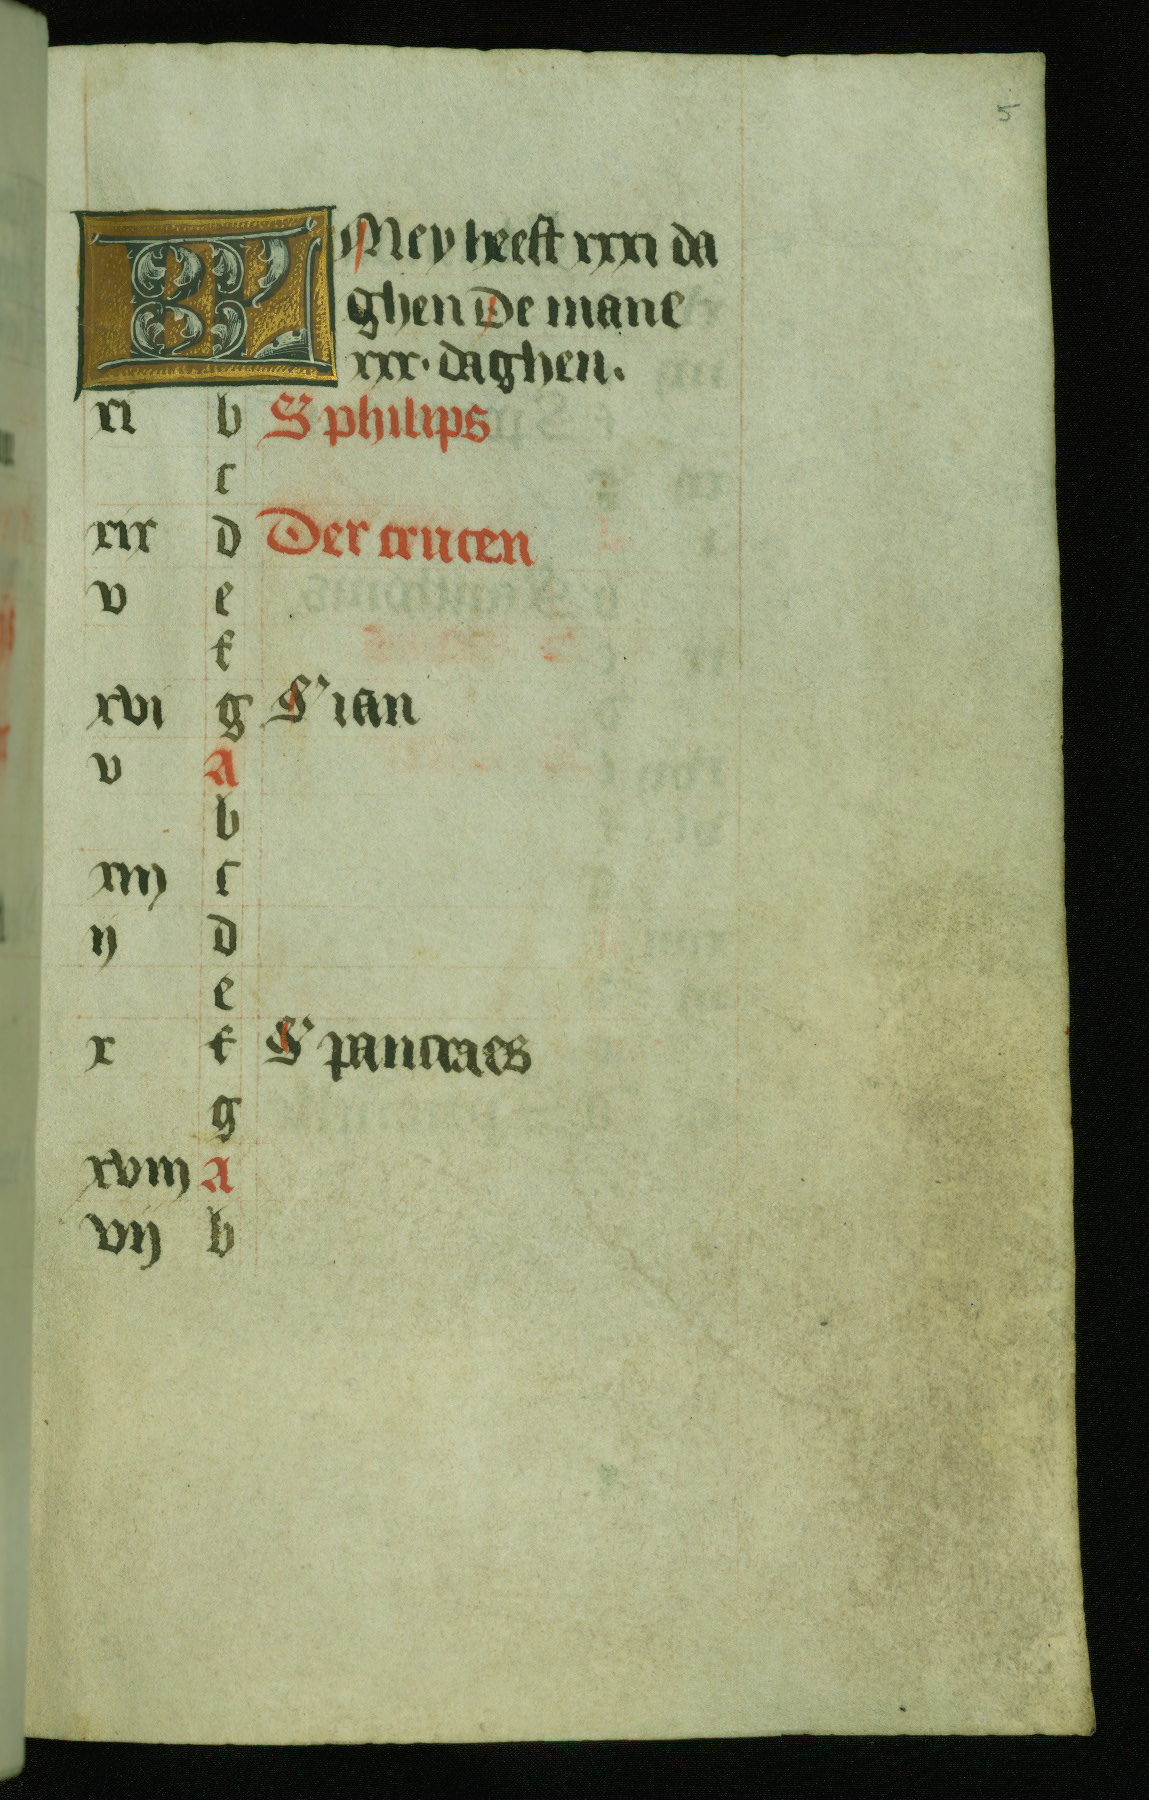 5
KL Mey heeft xxxi da
ghen De mane
xxx. daghen.
xi b S philips
c
xix d Der crucen
v e
f
xvi g S' ian
v A
b
xiij c
ij d
e
x f S' pancraes
g
xviij A
vij b